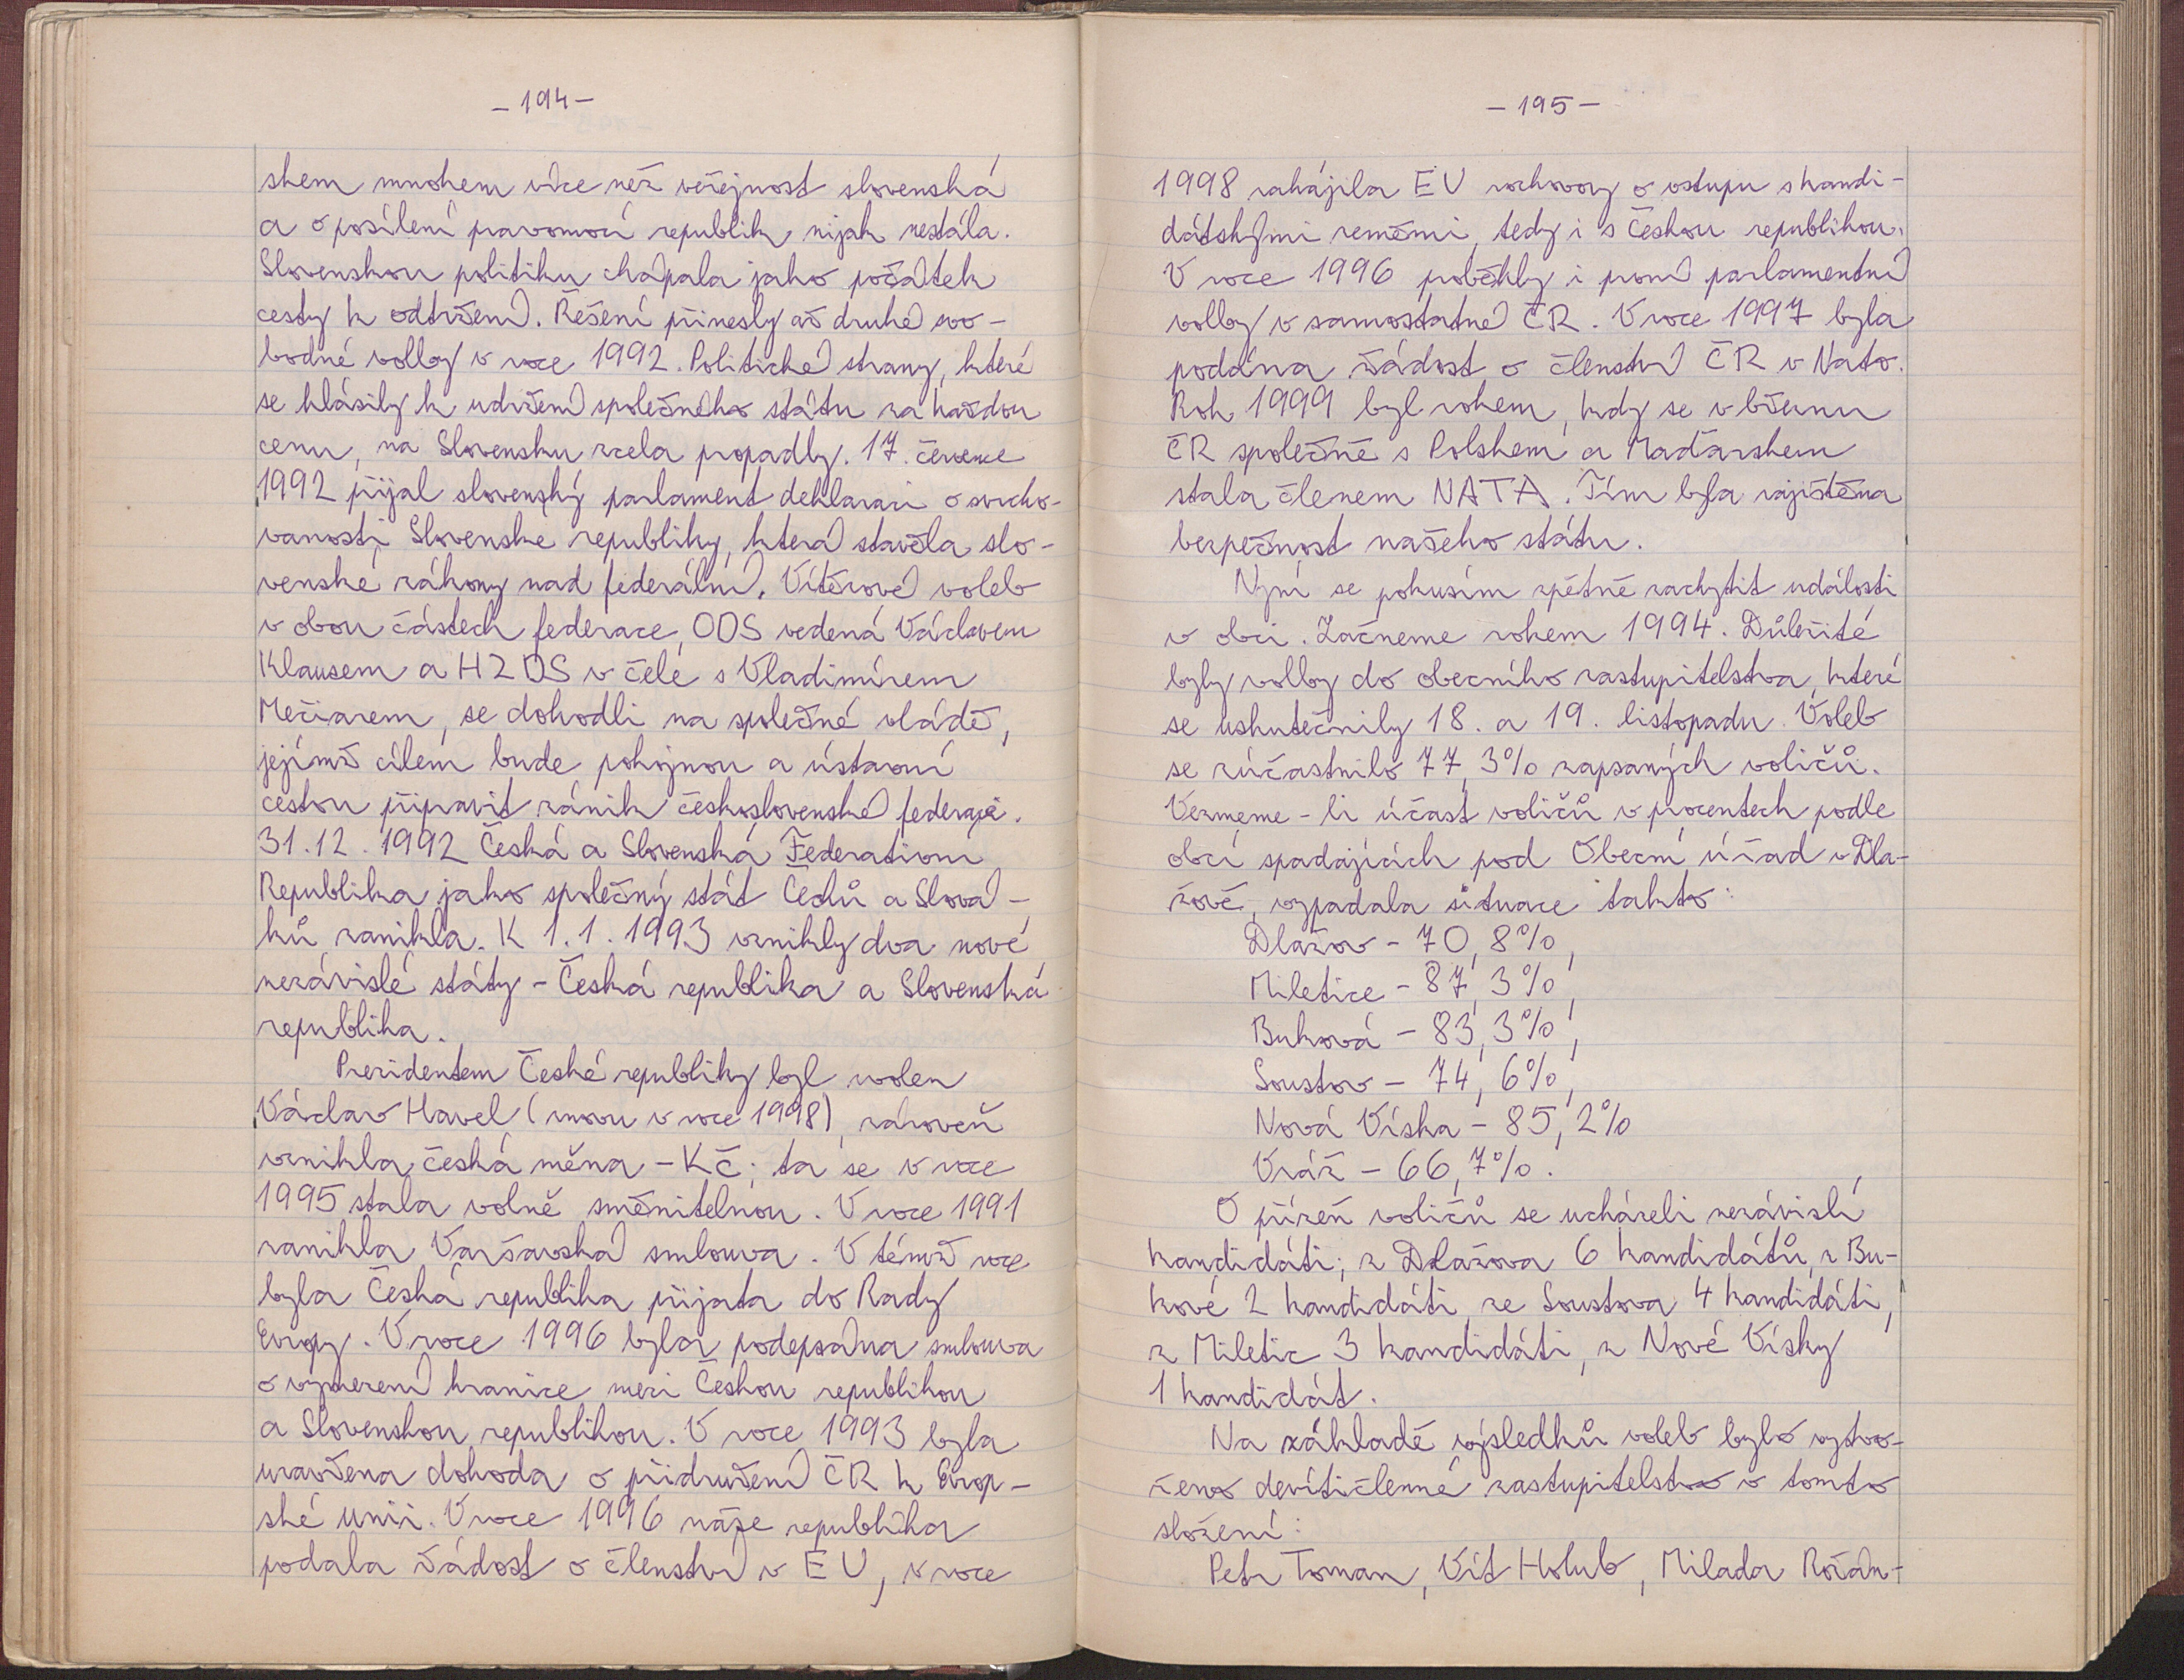 -194-
skem mnohem více než veřejnost slovenská
a o posílení pravomocí republik nijak nestála.
Slovenskou politiku chápala jako počátek
cesty k odtržení. Řešení přinesly až druhé svo-
bodné volby v roce 1992. Politické strany, které
se hlásily k udržení společného státu za každou
cenu, na Slovensku zcela propadly. 17. července
1992 přijal slovenský parlament deklaraci o svrcho-
vanosti Slovenské republiky, která stavěla slo-
venské zákony nad federální. Vítězové voleb
v obou částech federace, ODS vedená Václavem
Klausem a HZDS v čele s Vladimírem
Mečiarem, se dohodli na společné vládě,
jejímž cílem bude pokojnou a ústavní
cestou připravit zánik československé federace.
31.12.1992 Česká a Slovenská Federativní
Republika jako společný stát Čechů a Slová-
ků zanikla. K 1.1.1993 vznikly dva nové
nezávislé státy - Česká republika a Slovenská
republika.
Prezidentem České republiky byl zvolen
Václav Havel (znovu v roce 1998), zároveň
vznikla česká měna - Kč; ta se v roce
1995 stala volně směnitelnou. V roce 1991
zanikla Varšavská smlouva. V témž roce
byla Česká republika přijata do Rady
Evropy. V roce 1996 byla podepsána smlouva
o vymezení hranice mezi Českou republikou
a Slovenskou republikou. V roce 1993 byla
uzavřena dohoda o přidružení ČR k Evrop-
ské unii. V roce 1996 náše republika
podala žádost o členství v EU, v roce
-195-
1998 zahájila EU rozhovory o vstupu s kandi-
dátskými zeměmi, tedy i s Českou republikou.
V roce 1996 proběhly i první parlamentní
volby v samostatné ČR. V roce 1997 byla
podána žádost o členství ČR v Nato.
Rok 1999 byl rokem, kdy se v březnu
ČR společně s Polskem a Maďarskem
stala členem NATA. Tím byla zajištěna
bezpečnost našeho státu.
Nyní se pokusím zpětně zachytit události
v obci. Začneme rokem 1994. Důležité
byly volby do obecního zastupitelstva, které
se uskutečnily 18. a 19. listopadu. Voleb
se zúčastnilo 77,3% zapsaných voličů.
Vezmeme-li účast voličů v procentech podle
obcí spadajících pod Obecní úřad v Dla-
žově, vypadala situace takto:
Dlažov - 70,8%,
Miletice - 87,3%,
Buková - 83,3%,
Soustov - 74,6%,
Nová Víska - 85,2%
Vráž - 66,7%.
O přízeň voličů se ucházeli nezávislí
kandidáti; z Dlažova 6 kandidátů, z Bu-
kové 2 kandidáti, ze Soustova 4 kandidáti,
z Miletic 3 kandidáti, z Nové Vísky
1 kandidát.
Na základě výsledků voleb bylo vytvo-
řeno devítičlenné zastupitelstvo v tomto
složení:
Petr Toman, Vít Holub, Milada